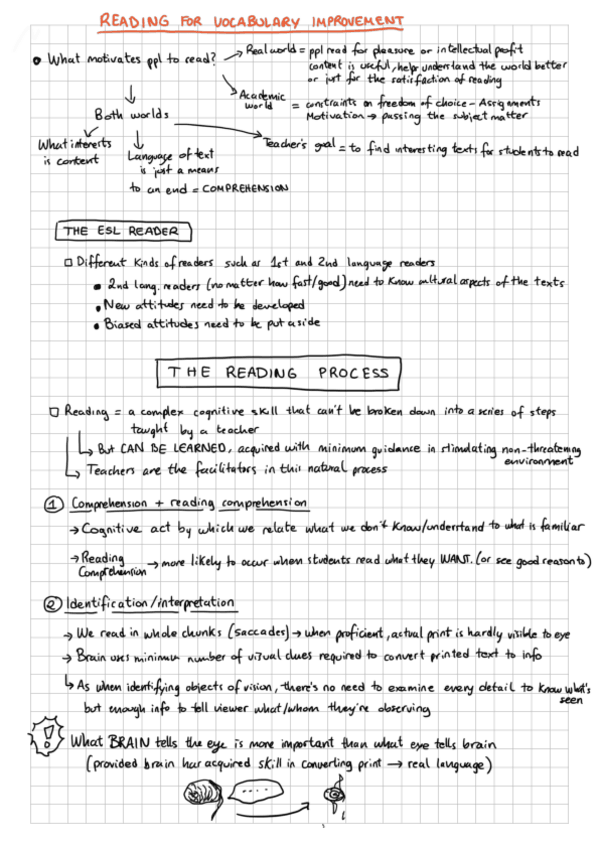 READING FOR VOCABULARY IMPROVEMENT
• What motivates ppl to read?
Real world = ppl read for pleasure or intellectual profit
content is useful, help understand the world better
or just for the satisfaction of reading
Academic world = constraints on freedom of choice - Assignments
Motivation → passing the subject matter
Both worlds
What interests
is content
Language of text
is just a means
to an end = COMPREHENSION
Teacher's goal = to find interesting texts for students to read
THE ESL READER
□ Different kinds of readers such as 1st and 2nd language readers
• 2nd lang. readers (no matter how fast/good) need to know cultural aspects of the texts
• New attitudes need to be developed
• Biased attitudes need to be put aside
THE READING PROCESS
□ Reading = a complex cognitive skill that can't be broken down into a series of steps
taught by a teacher
↳ But CAN BE LEARNED, acquired with minimum guidance in stimulating non-threatening
environment
↳ Teachers are the facilitators in this natural process
① Comprehension + reading comprehension
→ Cognitive act by which we relate what we don't know/understand to what is familiar
→ Reading Comprehension → more likely to occur when students read what they WANT. (or see good reason to)
② Identification/interpretation
→ We read in whole chunks (saccades) → when proficient, actual print is hardly visible to eye
→ Brain uses minimum number of visual clues required to convert printed text to info
↳ As when identifying objects of vision, there's no need to examine every detail to know what's
seen
but enough info to tell viewer what/whom they're observing
! What BRAIN tells the eye is more important than what eye tells brain
(provided brain has acquired skill in converting print → real language)